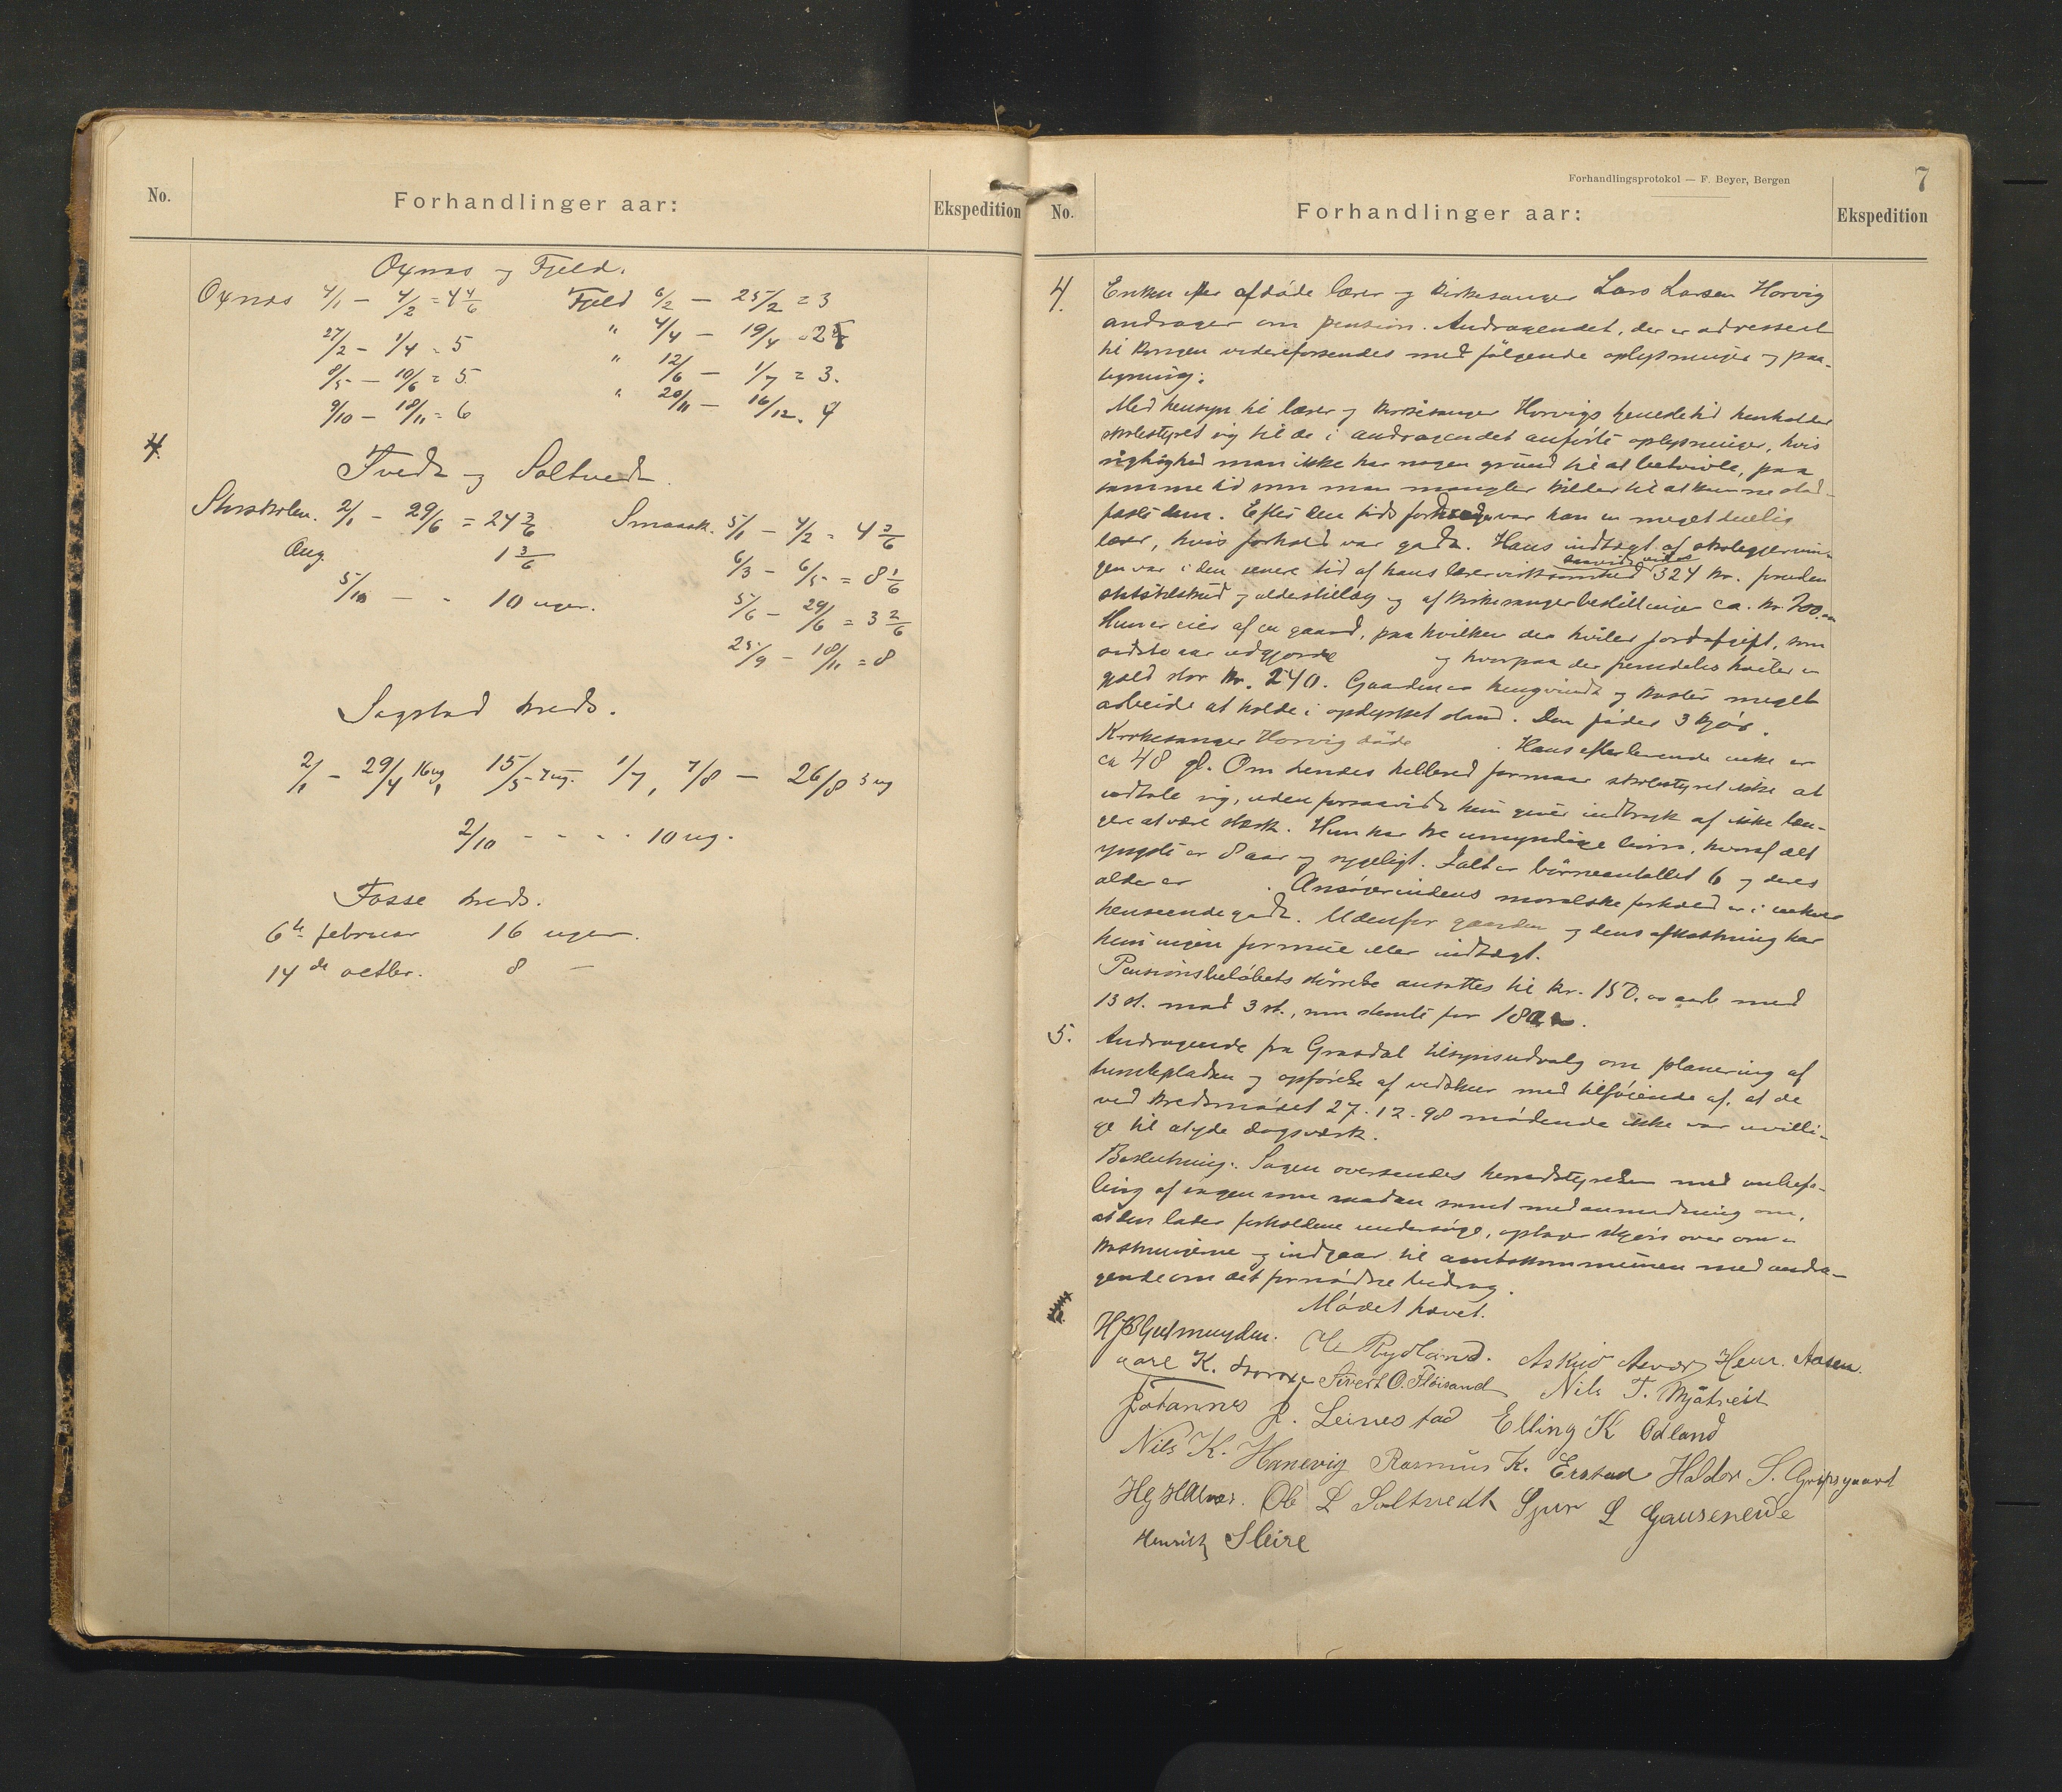 No.
Forhandlinger aar:
Ekspedition
Oxnæs og Fjeld.
Oxnæs 4/1 - 4/2 = 4 4/6 Fjeld 6/2 - 25/2 = 3
27/2 - 1/4 = 5 " 4/4 - 19/4 = 2
8/5 - 10/6 = 5 " 12/6 - 1/7 = 3.
9/10 - 18/11 = 6 " 20/11 - 16/12 . 4
4.
Tvedt og Soltvedt.
Storskolen. 2/1 - 29/6 = 24 3/6 Smaask. 5/1 - 4/2 = 4 3/6
Aug. 1 3/6 6/3 - 6/5 = 8 1/6
5/10 - - 10 uger. 5/6 - 29/6 = 3 2/6
25/9 - 18/11 = 8
Sagstad kreds.
2/1 - 29/4 16 ug, 15/5 - 7 ug. 1/7, 7/8 - 26/8 3 ug
2/10 - - - - 10 ug.
Fosse kreds.
6te februar 16 uger.
14de octbr. 8 -
Forhandlingsprotokol — F. Beyer, Bergen
7
No.
Forhandlinger aar:
Ekspedition
4. Enken efter afdøde lærer og kirkesanger Lars Larsen Horvig
andrager om pension. Andragendet, der er adresseret
til kongen videreforsendes med følgende oplysninger og paa-
tegning:
Med hensyn til lærer og kirkesanger Horvigs tjenestetid henholder
skolestyret sig til de i andragendet anførte oplysninger, hvis
rigtighed man ikke har nogen grund til at betvivle, paa
samme tid som man mangler kilder til at kunne stad-
fæste dem. Efter den tids fordringer var han en meget duelig
lærer, hvis forhold var godt. Hans indtægt af skolegjernin-
gen var i den senere tid af hans lærervirksomhed saavidt vides 324 kr. foruden
statstilskud og alderstillæg og af kirkesangerbestillingen ca. kr. 700.00
Hun er eier af en gaard, paa hvilken der hviler jordafgift, som
sidste aar udgjorde og hvorpaa der fremdeles hviler en
gjæld stor kr. 240. Gaarden er tungvindt og koster meget
arbeide at holde i opdyrket stand. Den føder 3 kjør.
Kirkesanger Horvig døde . Hans efterlevende enke er
ca 48 gl. Om hendes helbred formaar skolestyret ikke at
udtale sig, uden forsaavidt hun giver indtryk af ikke læn-
gere at være stærk. Hun har tre umyndige børn, hvoraf det
yngste er 8 aar og sygeligt. Ialt er børneantallet 6 og deres
alder er . Ansøgerindens moralske forhold er i enhver
henseende godt. Udenfor gaarden og dens afkastning har
hun ingen formue eller indtægt.
Pensionsbeløbets størrelse ansattes til kr. 150.00 aarl. med
13 st. mod 3 st., som stemte for 180.
5. Andragende fra Grasdal tilsynsudvalg om planering af
tumlepladsen og opførelse af vedskur med tilføiende af, at de
ved kredsmødet 27.12.98 mødende ikke var uvilli-
ge til at yde dagsværk.
Beslutning: Sagen oversendes herredstyrelsen med anbefa-
ling af sagen som saadan samt med anmodning om,
at den lader forholdene undersøge, optage skjøn over om-
kostningerne og indgaar til amtskommunen med andra-
gende om det fornødne bidrag.
Mødet hævet.
H. Gjelmuyden. Ole Rydland. Askild Henr. Aasen.
K. Sivert O. Fløisand Nils T. Mjåtveit
Johannes J. Leinestad Elling K Odland
Nils K. Hanevig Rasmus K. Erstad Haldor S. Gripsgaard
Ole L Soltvedt Sjur L Gausereide
Henrik Sleire